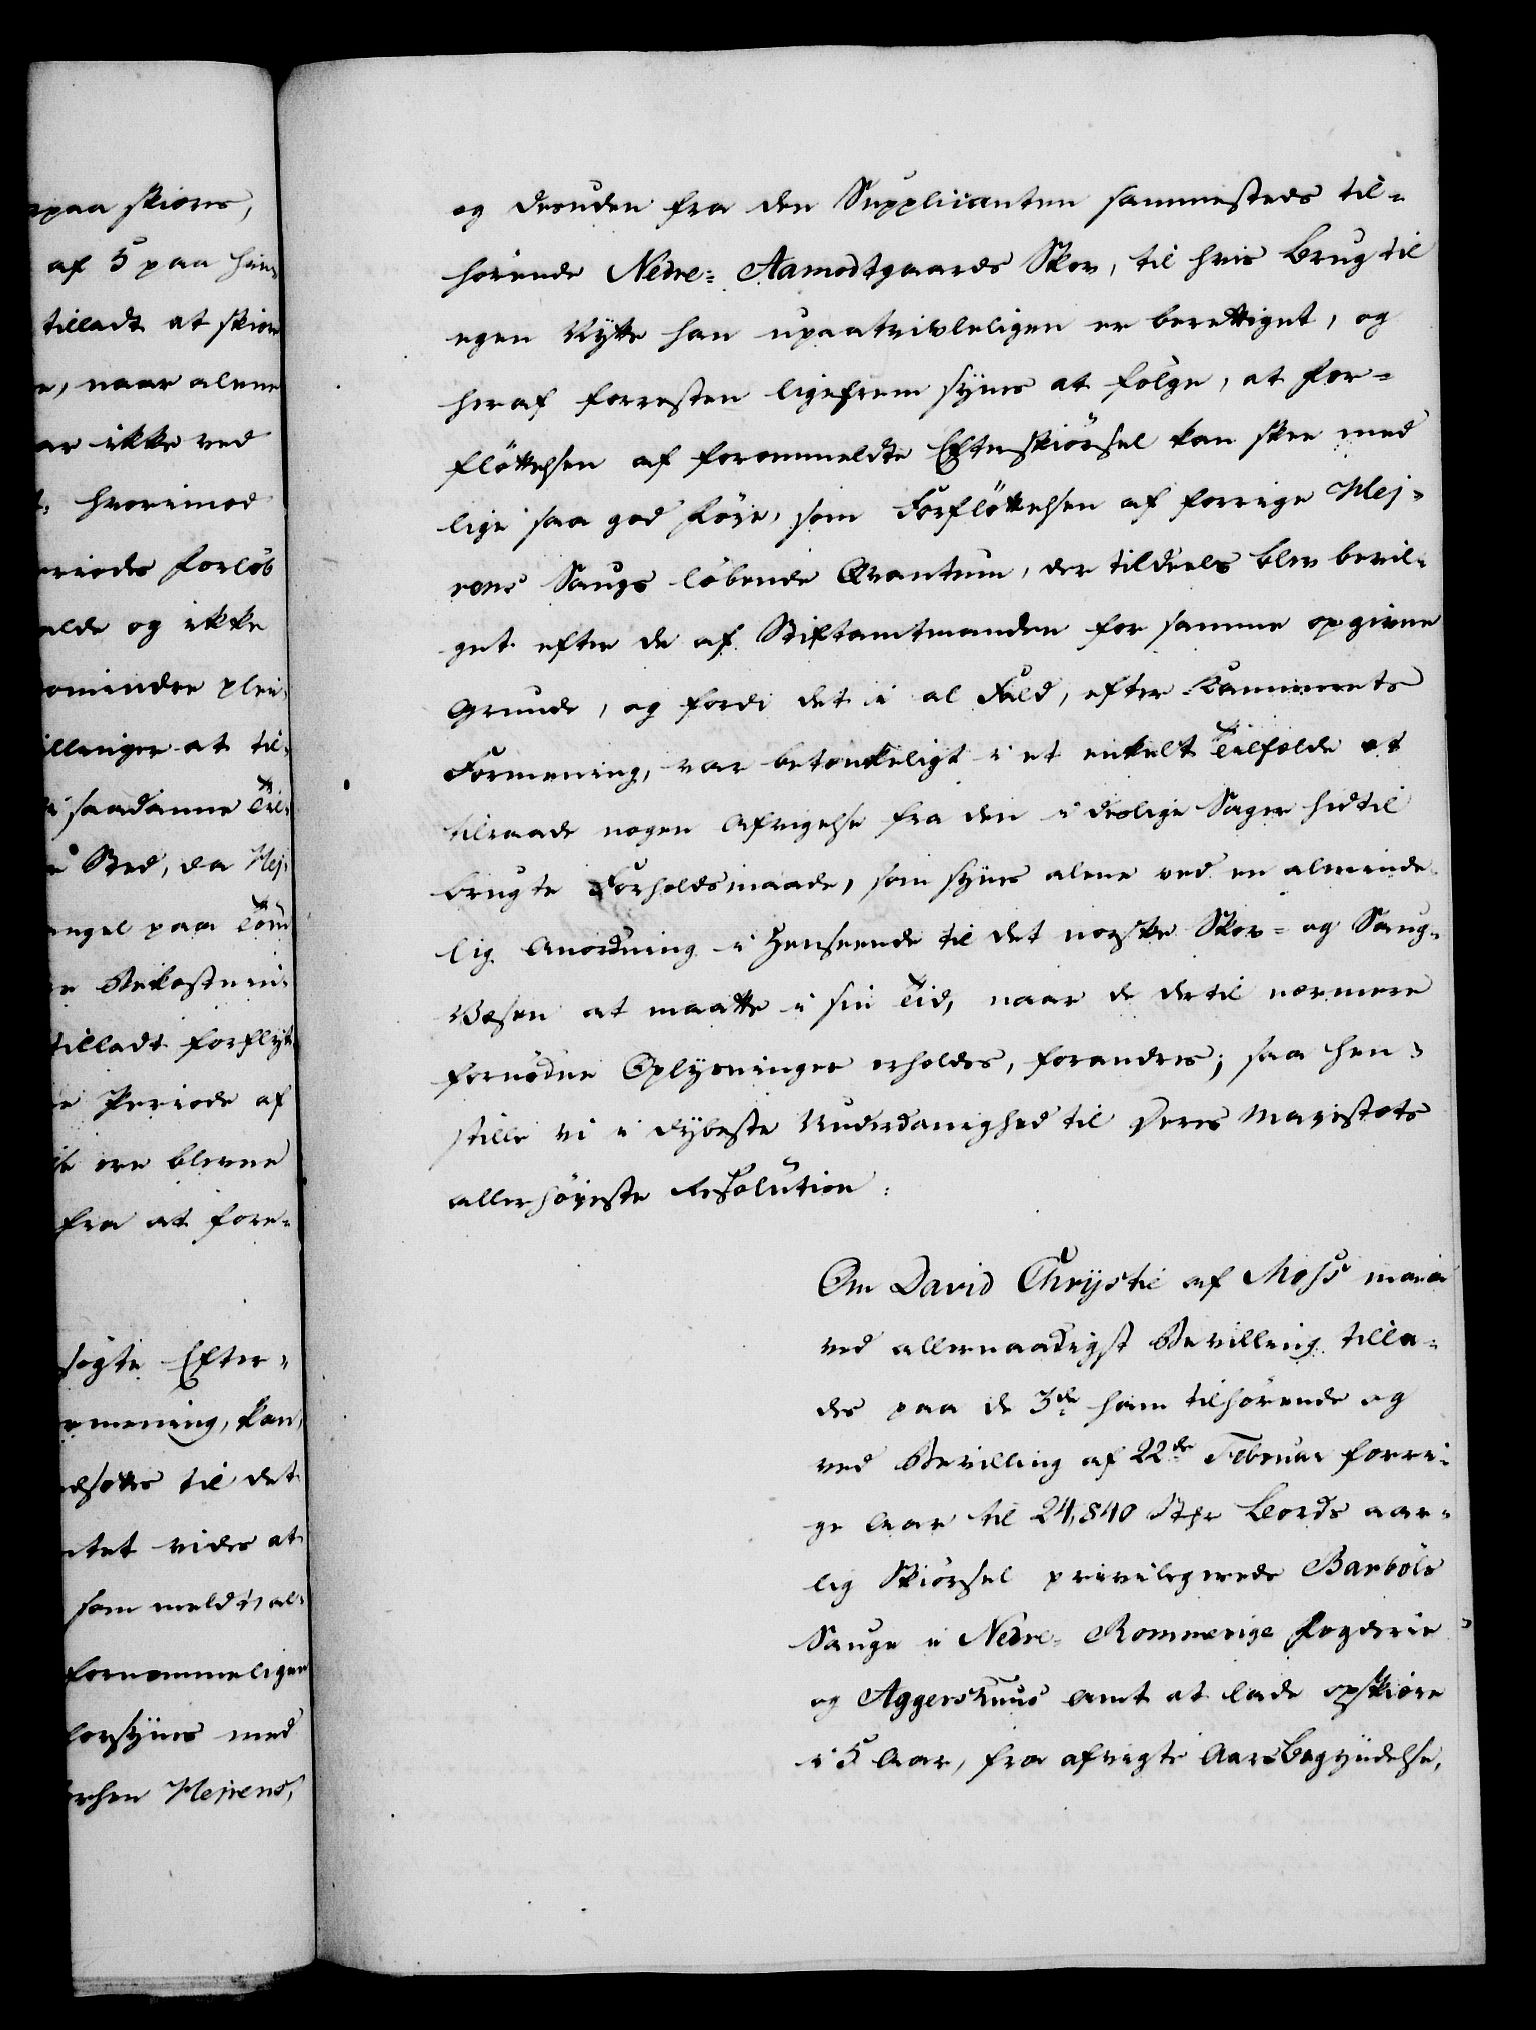 paa skiæres,
af 5 paa hin¬
tilladt at skiære
e, naar alene
ar ikke ved
t. hvorimod
eriodes forløb
alde og ikke
omindre plei¬
illinger at til¬
saadanne Til¬
Sted, da Mej¬
angel paa Töm
e Bekostnin¬
tilladt forflyt
e Periode af
ere blevne
fra at fore¬
søgte Efter¬
rmening, kan,
dsættes til det
ntet vides at
som meldt, al¬
fornemmeligen
forsynes med
Mejrens,
og desuden fra den Supplicanten sammesteds til¬
hørende Nedre= Aamodtgaards Skov, til hvis Brug til
egen Nytte han upaatvivleligen er berettiget, og
heraf forresten ligefrem synes at følge, at for=
flöttelsen af forommeldte Efterskiörsel kan skee med
lige saa god Föie, som Forflöttelsen af forrige Mej¬
rens Saugs löbende Qvantum, der tildeels blev bevil¬
get efter de af Stiftamtmanden for samme opgivne
Grunde, og fordi det i al Fald, efter Kammerets
Formening, var betænkeligt i et enkelt Tilfælde at
tilraade nogen Afvigelse fra den i deslige Sager hidtil
brugte Forholdsmaade, som synes alene ved en alminde¬
lig Anordning i Henseende til det norske Skov= og Saug¬
Væsen at maatte i sin Tid, naar de dertil nærmere
fornödne Oplysninger erholdes, forandres; saa hen¬
stille vi i dybeste Underdanighed til Deres Majestæts
allerhöyeste Resolution:
Om David Chrystie af Moss maae
ved allernaadigst Bevilling tilla¬
des paa de 3de ham tilhörende og
ved Bevilling af 22de Februar forri¬
ge Aar til 24,840 Stkr Bords aar¬
lig Skiörsel privilegerede Barböle
Sauge i Nedre= Rommerige Fogderie
og Aggershuus Amt at lade opskiære
i 5 Aar, fra afvigte Aars Begyndelse,